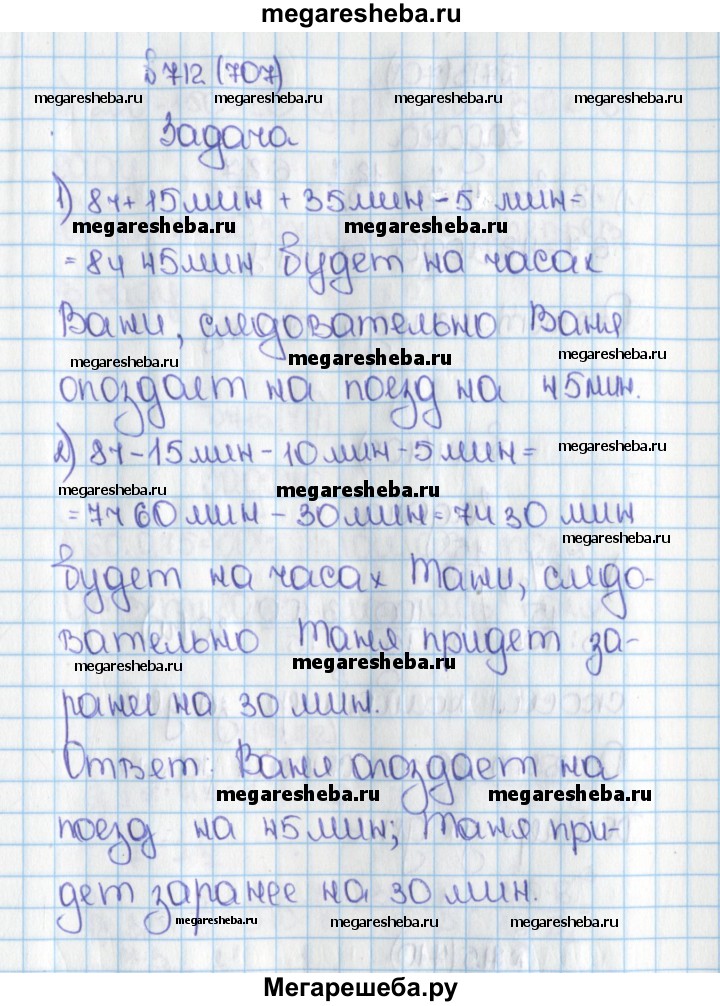 megaresheba.ru
№712 (707)
megaresheba.ru megaresheba.ru megaresheba.ru megaresheba.ru
Задача
1) 8ч + 15 мин + 35 мин - 5 мин =
megaresheba.ru megaresheba.ru
= 8ч 45 мин будет на часах
Вани, следовательно Ваня
megaresheba.ru megaresheba.ru megaresheba.ru
опоздает на поезд на 45 мин.
2) 8ч - 15 мин - 10 мин - 5 мин =
megaresheba.ru
megaresheba.ru megaresheba.ru
= 7ч 60 мин - 30 мин = 7ч 30 мин
megaresheba.ru
будет на часах Тани, следо-
вательно Таня придет за-
megaresheba.ru megaresheba.ru
ранее на 30 мин.
Ответ: Ваня опоздает на
megaresheba.ru megaresheba.ru
поезд на 45 мин; Таня при-
дет заранее на 30 мин.
megaresheba.ru megaresheba.ru megaresheba.ru
Мегарешеба.ру